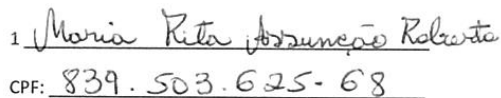 1 Maria Rita Assunção Roberta
CPF: 839.503.625-68